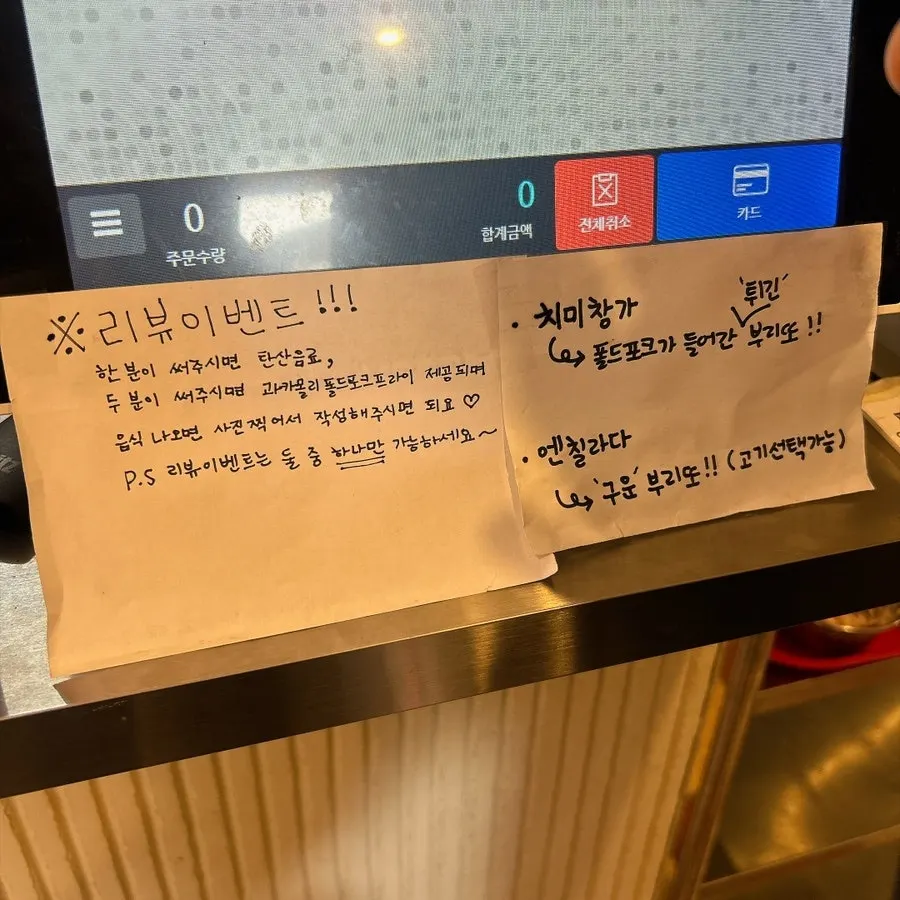 0
주문수량
0
합계금액
전체취소
카드
※리뷰이벤트!!!
한분이 써주시면 탄산음료,
두분이 써주시면 과카몰리 폴드포크프라이 제공되며
음식 나오면 사진찍어서 작성해주시면 되요♡
P.S 리뷰이벤트는 둘 중 하나만 가능하세요~
· 치미창가
'튀긴'
↪ 폴드포크가 들어간 부리또!!
· 엔칠라다
↪ '구운' 부리또!! (고기선택가능)